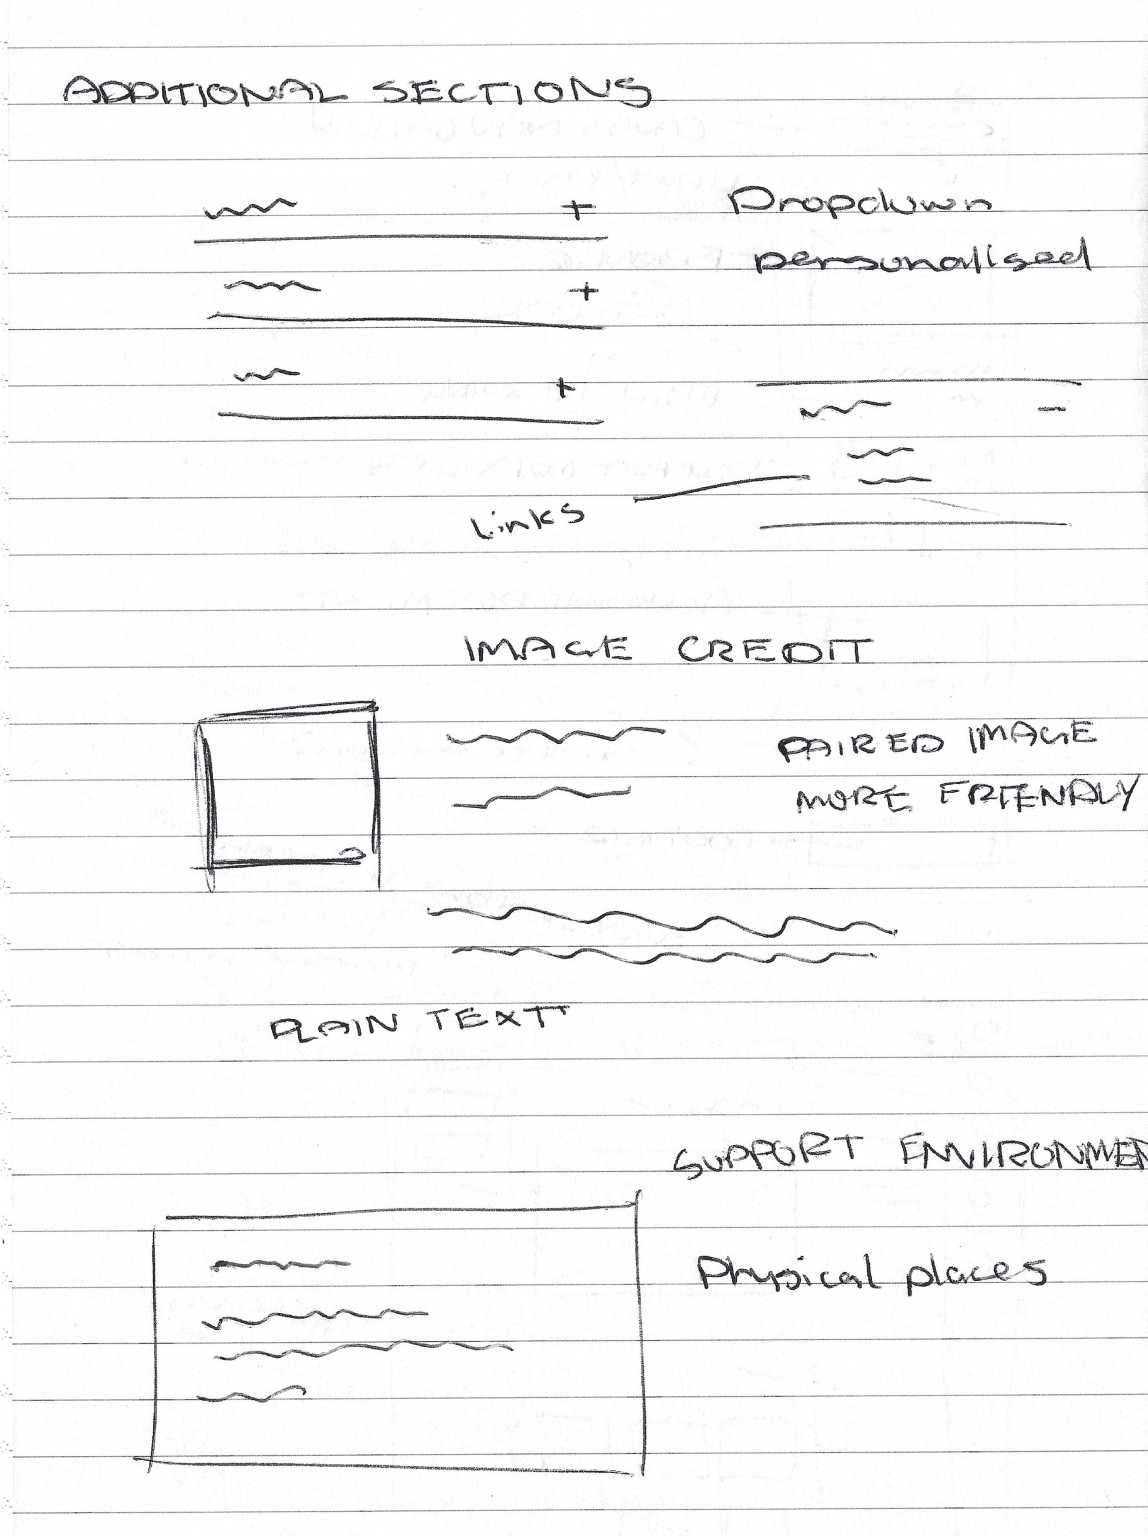 ADDITIONAL SECTIONS
+ Dropdown
personalised
+
+
-
Links
IMAGE CREDIT
PAIRED IMAGE
MORE FRIENDLY
PLAIN TEXT
SUPPORT ENVIRONMEN
Physical places